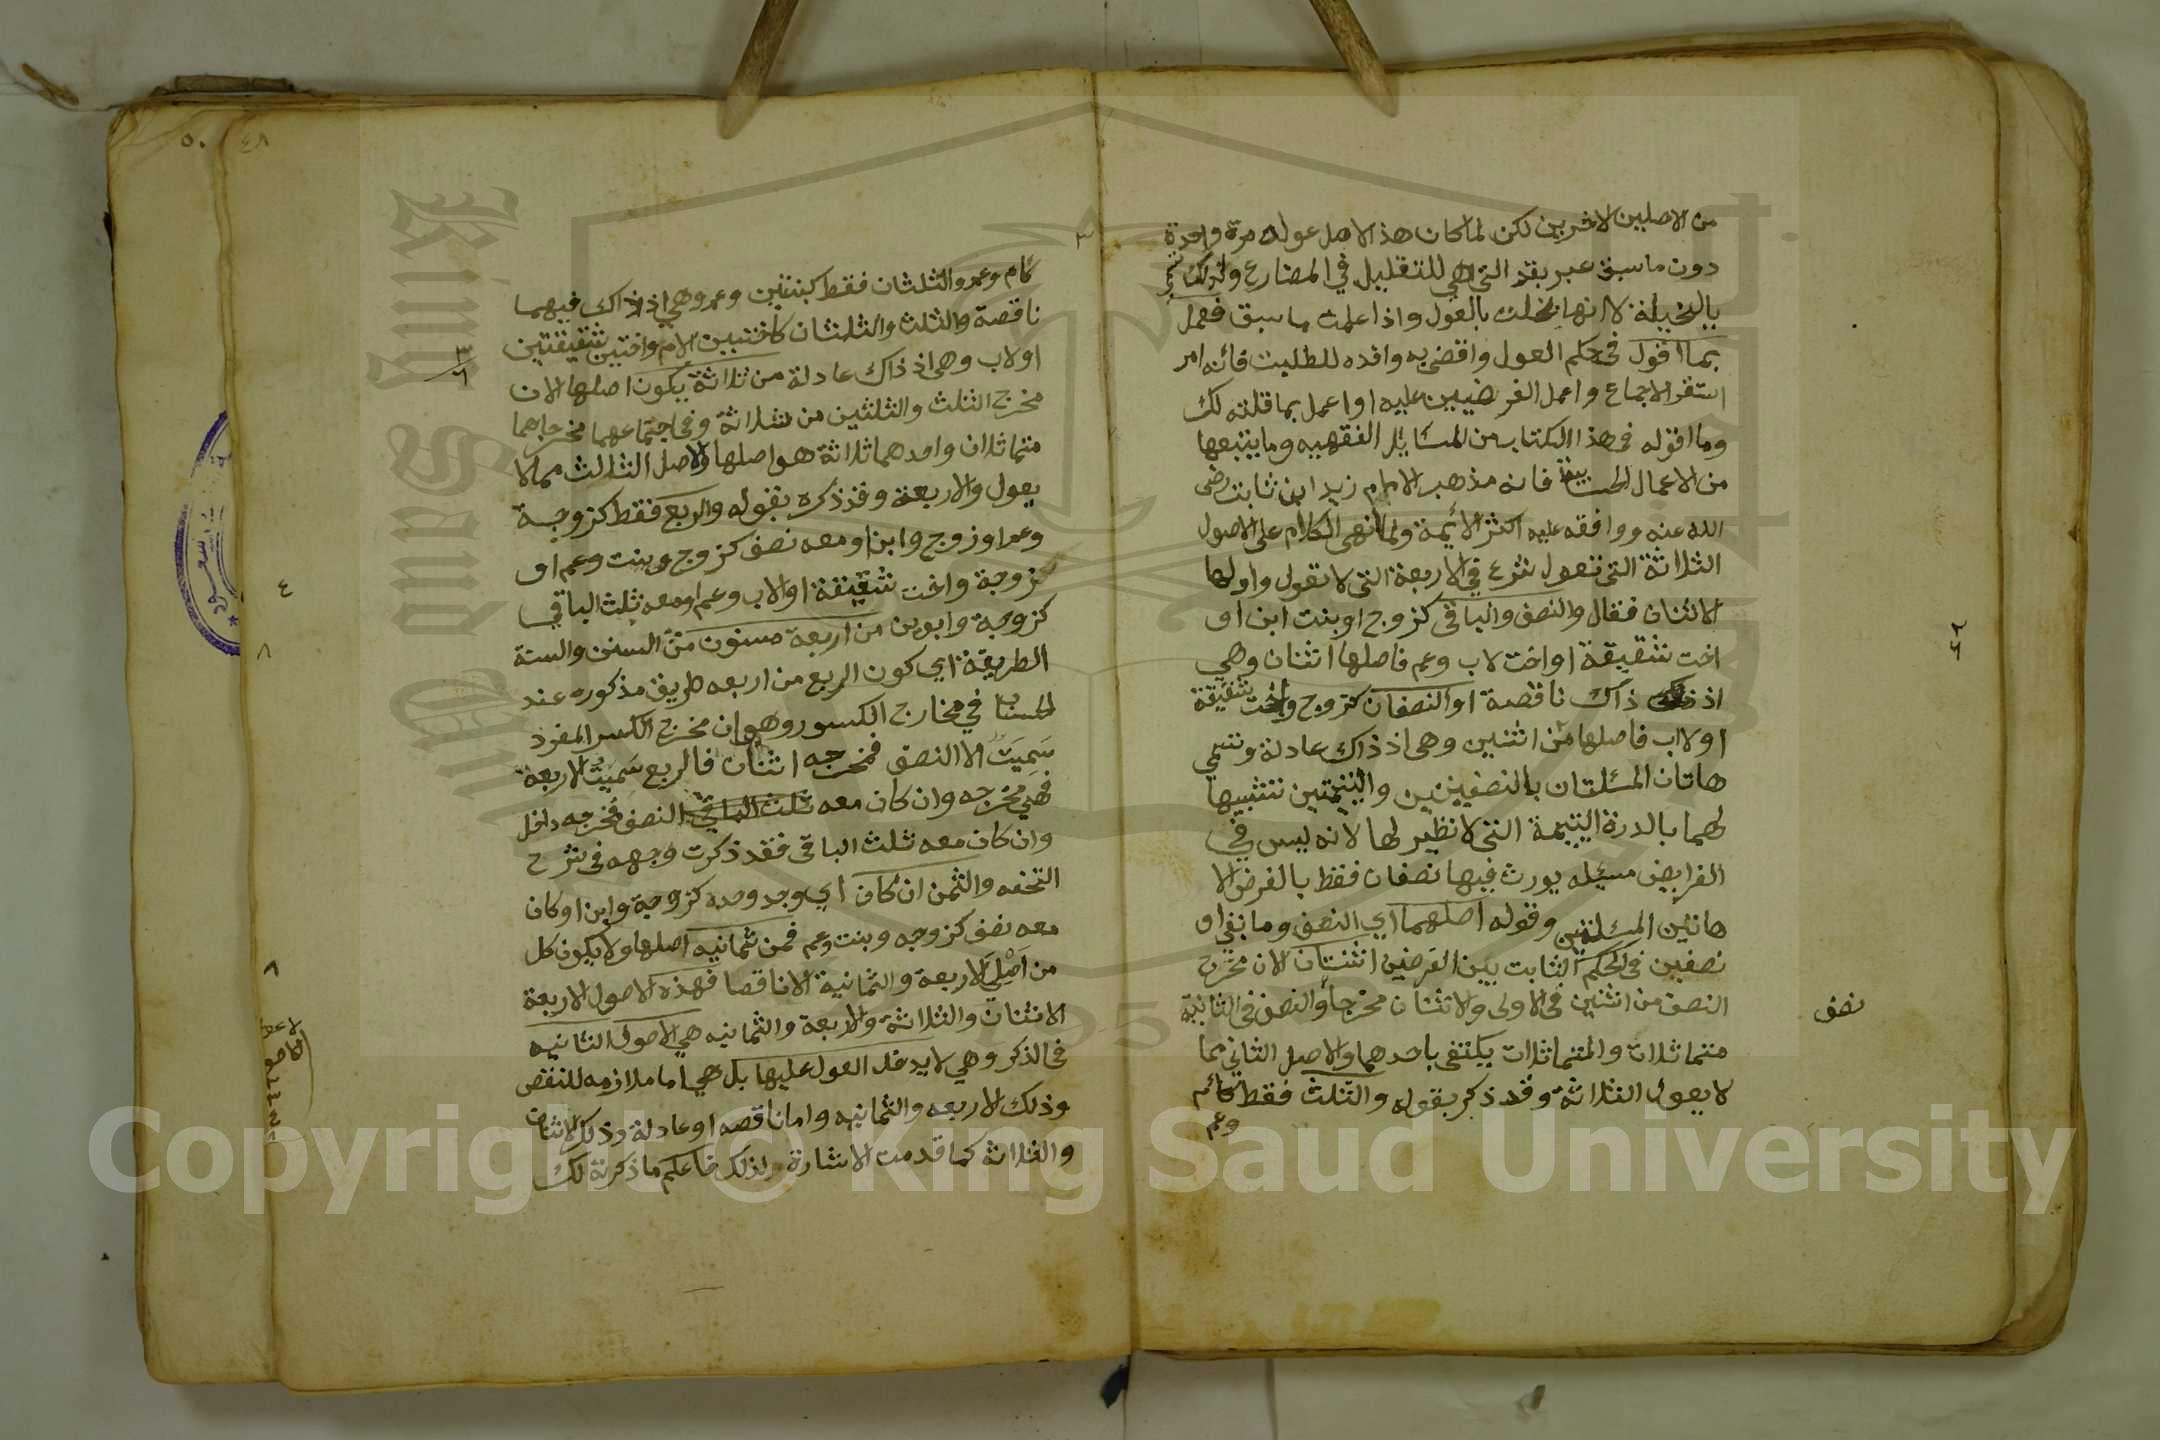 من الاصلين الاخريين لكن لما كان هذا الاصل عوله مرة واحدة
دون ما سبق عبر بقد التي هي للتقليل في المضارع ولذلك تسمى
بالبخيلة لانها بخلت بالعول واذا علمت ما سبق فعمل
بما اقول في حكم العول واقض به وافده للطلبت فانه امر
استقر الاجماع واعمل الفرضيين عليه او اعمل بما قلته لك
وما اقوله في هذا الكتاب من المسايل الفقهيه وما يتبعها
من الاعمال الحسابية فانه مذهب الامام زيد ابن ثابت رضي
الله عنه ووافقه عليه اكثر الأيمة ولما انهى الكلام على الاصول
الثلاثة التي تعول شرع في الاربعة التي لا تعول واولها
الاثنان فقال والنصف والباقي كزوج او بنت ابن او
اخت شقيقة او اخت لاب وعم فاصلها اثنان وهي
اذ ذاك ناقصة او النصفان كزوج واخت شقيقة
او لاب فاصلها من اثنين وهي اذ ذاك عادلة وتسمى
هاتان المسئلتان بالنصفيتين واليتيمتين تشبيها
لهما بالدرة اليتيمة التي لا نظير لها لانه ليس في
الفرايض مسيله يورث فيها نصفان فقط بالفرض الا
هاتين المسئلتين وقوله اصلهما اي النصف وما بقي او
نصفين في الحكم الثابت بين الفرضيين اثنتان لان مخرج
النصف من اثنين في الاولى والاثنان مخرجا والنصف في الثانية
نصف
متماثلان والمتماثلان يكتفى باحدهما والاصل الثاني مما
لا يعول الثلاثة وقد ذكر بقوله والثلث فقط كام
وعم
٢
٤
٣
كام وعم والثلثان فقط كبنتين وعم وهي اذ ذاك فيهما
ناقصة والثلث والثلثان كاختيين لام واختين شقيقتين
٣
٦
او لاب وهي اذ ذاك عادلة من ثلاثة يكون اصلها لان
مخرج الثلث والثلثين من ثلاثة وفي اجتماعهما مخرجاهما
متماثلان واحدهما ثلاثة هو اصلها والاصل الثالث مما لا
يعول والاربعة وقد ذكره بقوله والربع فقط كزوجة
وعم او زوج وابن او معه نصف كزوج وبنت وعم او
كزوجة واخت شقيقة او لاب وعم او معه ثلث الباقي
٤
كزوجة وابوين من اربعة مسنون من السنن والسنة
الطريقة اي كون الربع من اربعه طريق مذكوره عند
٨
الحساب في مخارج الكسور وهو ان مخرج الكسر المفرد
سَمِيَتَ الا النصف فمخرجه اثنان فالربع سَمِيَتُ الاربعة
فهي مخرجه وان كان معه ثلث الباقي النصف فمخرجه داخل
وان كان معه ثلث الباقي فقد ذكرت وجهه في شرح
التحفه والثمن ان كان اي وجد وحده كزوجة وابن او كان
معه نصف كزوجه وبنت وعم فمن ثمانيه اصلها ولا يكون كل
من اصلي الاربعة والثمانية الا ناقصا فهذه الاصول الاربعة
٨
الاثنان والثلاثة والاربعة والثمانيه هي الاصول الثانيه
في الذكر وهي لا يدخل العول عليها بل هي اما ملازمه للنقص
وذلك الاربعه والثمانيه واما ناقصه او عادلة وذلك الاثنان
والثلاثه كما قدمت الاشارة لذلك فاعلم ما ذكرته لك
٤٨
٥٠
Copyright © King Saud University